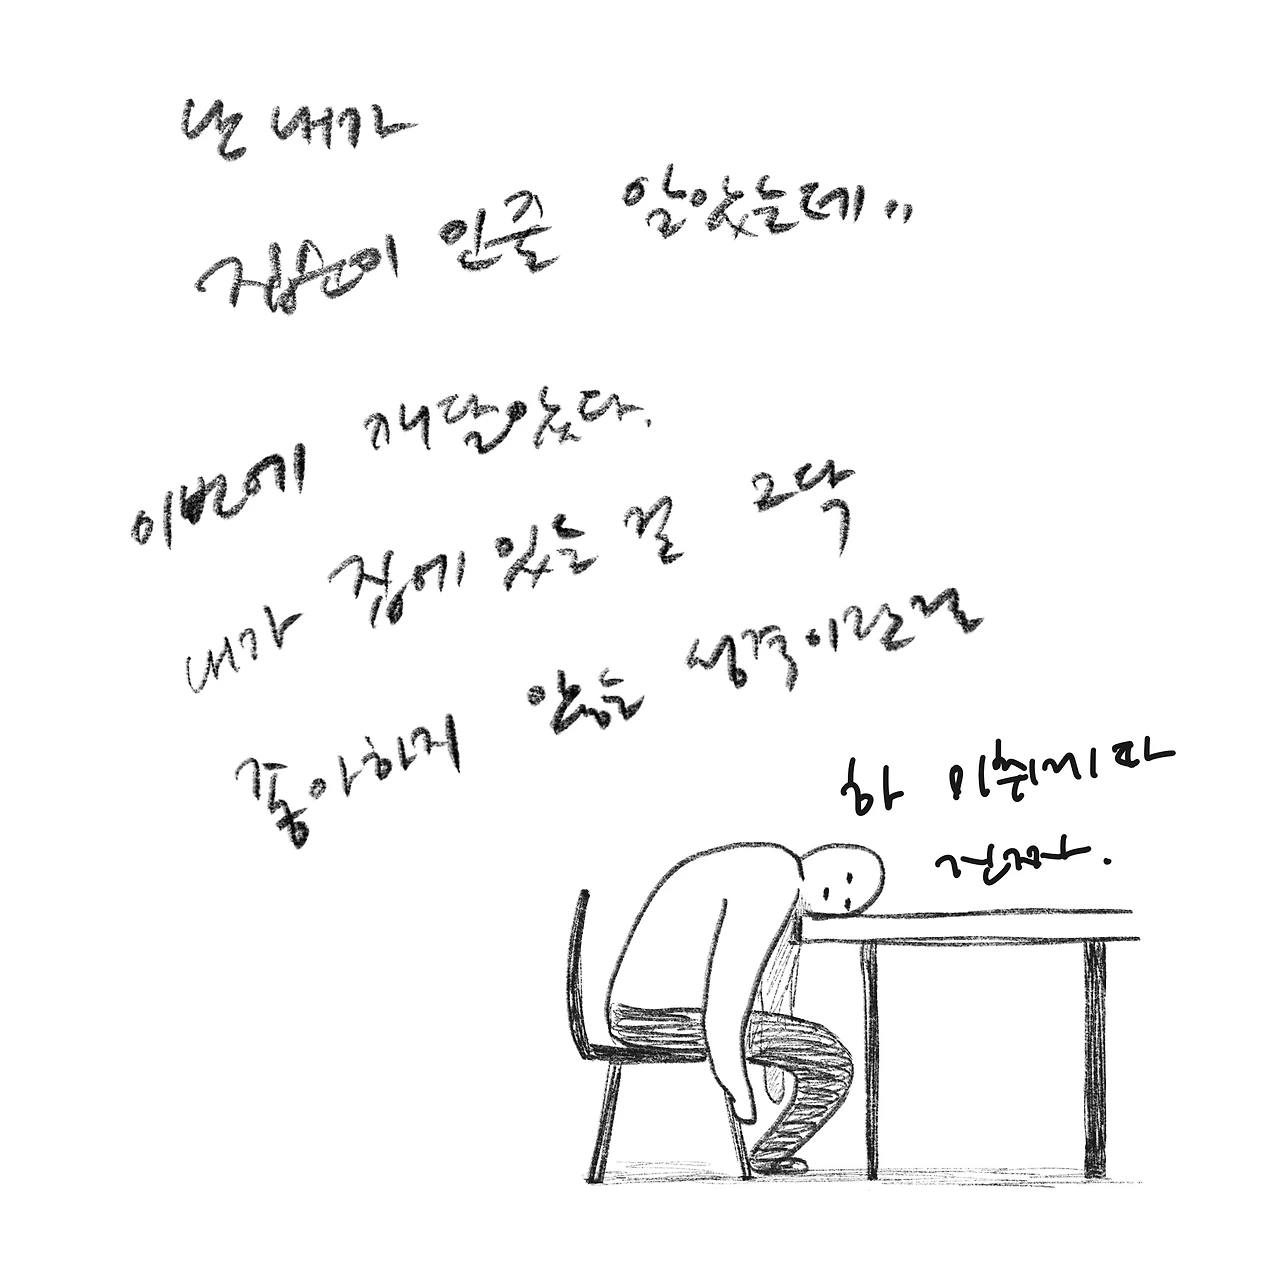 난 내가
집순이 인줄 알았는데..
이번에 깨달았다.
내가 집에 있는 걸 그닥
좋아하지 않는 성격이란걸
하 미취게따
진짜.